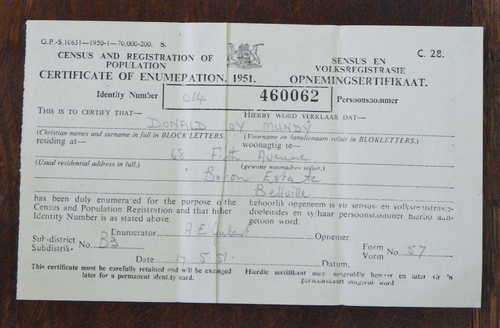 G.P.-S.10631—1950-1—70,000-200. S.
C. 28.
CENSUS AND REGISTRATION OF POPULATION
CERTIFICATE OF ENUMERATION, 1951.
SENSUS EN VOLKSREGISTRASIE
OPNEMINGSERTIFIKAAT.
Identity Number 014 460062 Persoonsnommer
THIS IS TO CERTIFY THAT— HIERBY WORD VERKLAAR DAT—
DONALD MUNDY
(Christian names and surname in full in BLOCK LETTERS.) (Voorname en familienaam voluit in BLOKLETTERS.)
residing at— woonagtig te—
68 Avenue
(Usual residential address in full.) (gewone woonadres voluit.)
Estate
Bellville
has been duly enumerated for the purpose of the Census and Population Registration and that his/her Identity Number is as stated above.
behoorlik opgeneem is vir sensus- en volksregistrasie-doeleindes en sy/haar persoonsnommer hierbo aangetoon word.
Enumerator Opnemer.
Sub-district
Subdistrik No. 33
Form
Vorm No. 57
Date 5.51 Datum.
This certificate must be carefully retained and will be exchanged later for a permanent identity card.
Hierdie sertifikaat moet sorgvuldig bewaar en later vir 'n persoonskaart omgeruil word.